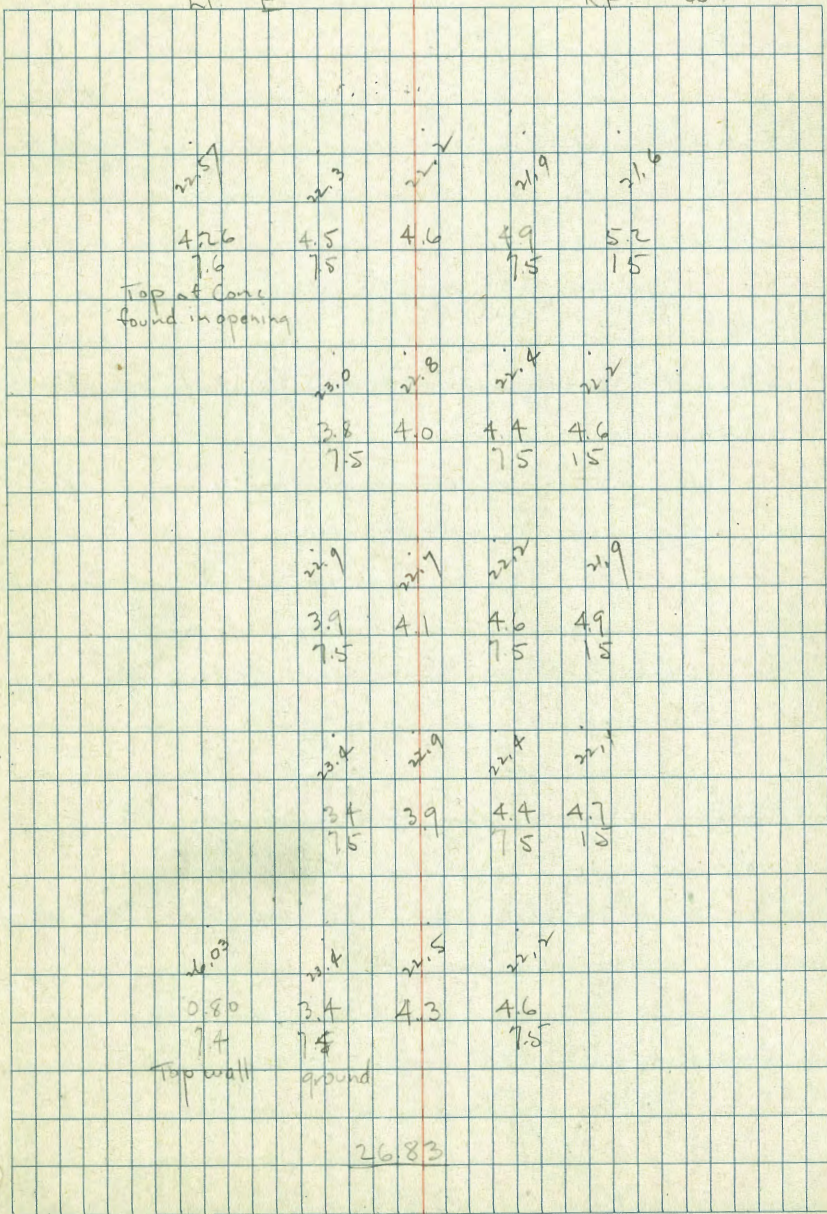 22.57 22.3 22.2 21.9 21.6
4.26 4.5 4.6 4.9 5.2
7.6 7.5 7.5 15
Top of Conc
found in opening
23.0 22.8 22.4 22.2
3.8 4.0 4.4 4.6
7.5 7.5 15
22.9 22.7 22.2 21.9
3.9 4.1 4.6 4.9
7.5 7.5 15
23.4 22.9 22.4 22.1
3.4 3.9 4.4 4.7
7.5 7.5 15
26.03 23.4 22.5 22.2
0.80 3.4 4.3 4.6
7.4 7.5 7.5
Top wall ground
26.83